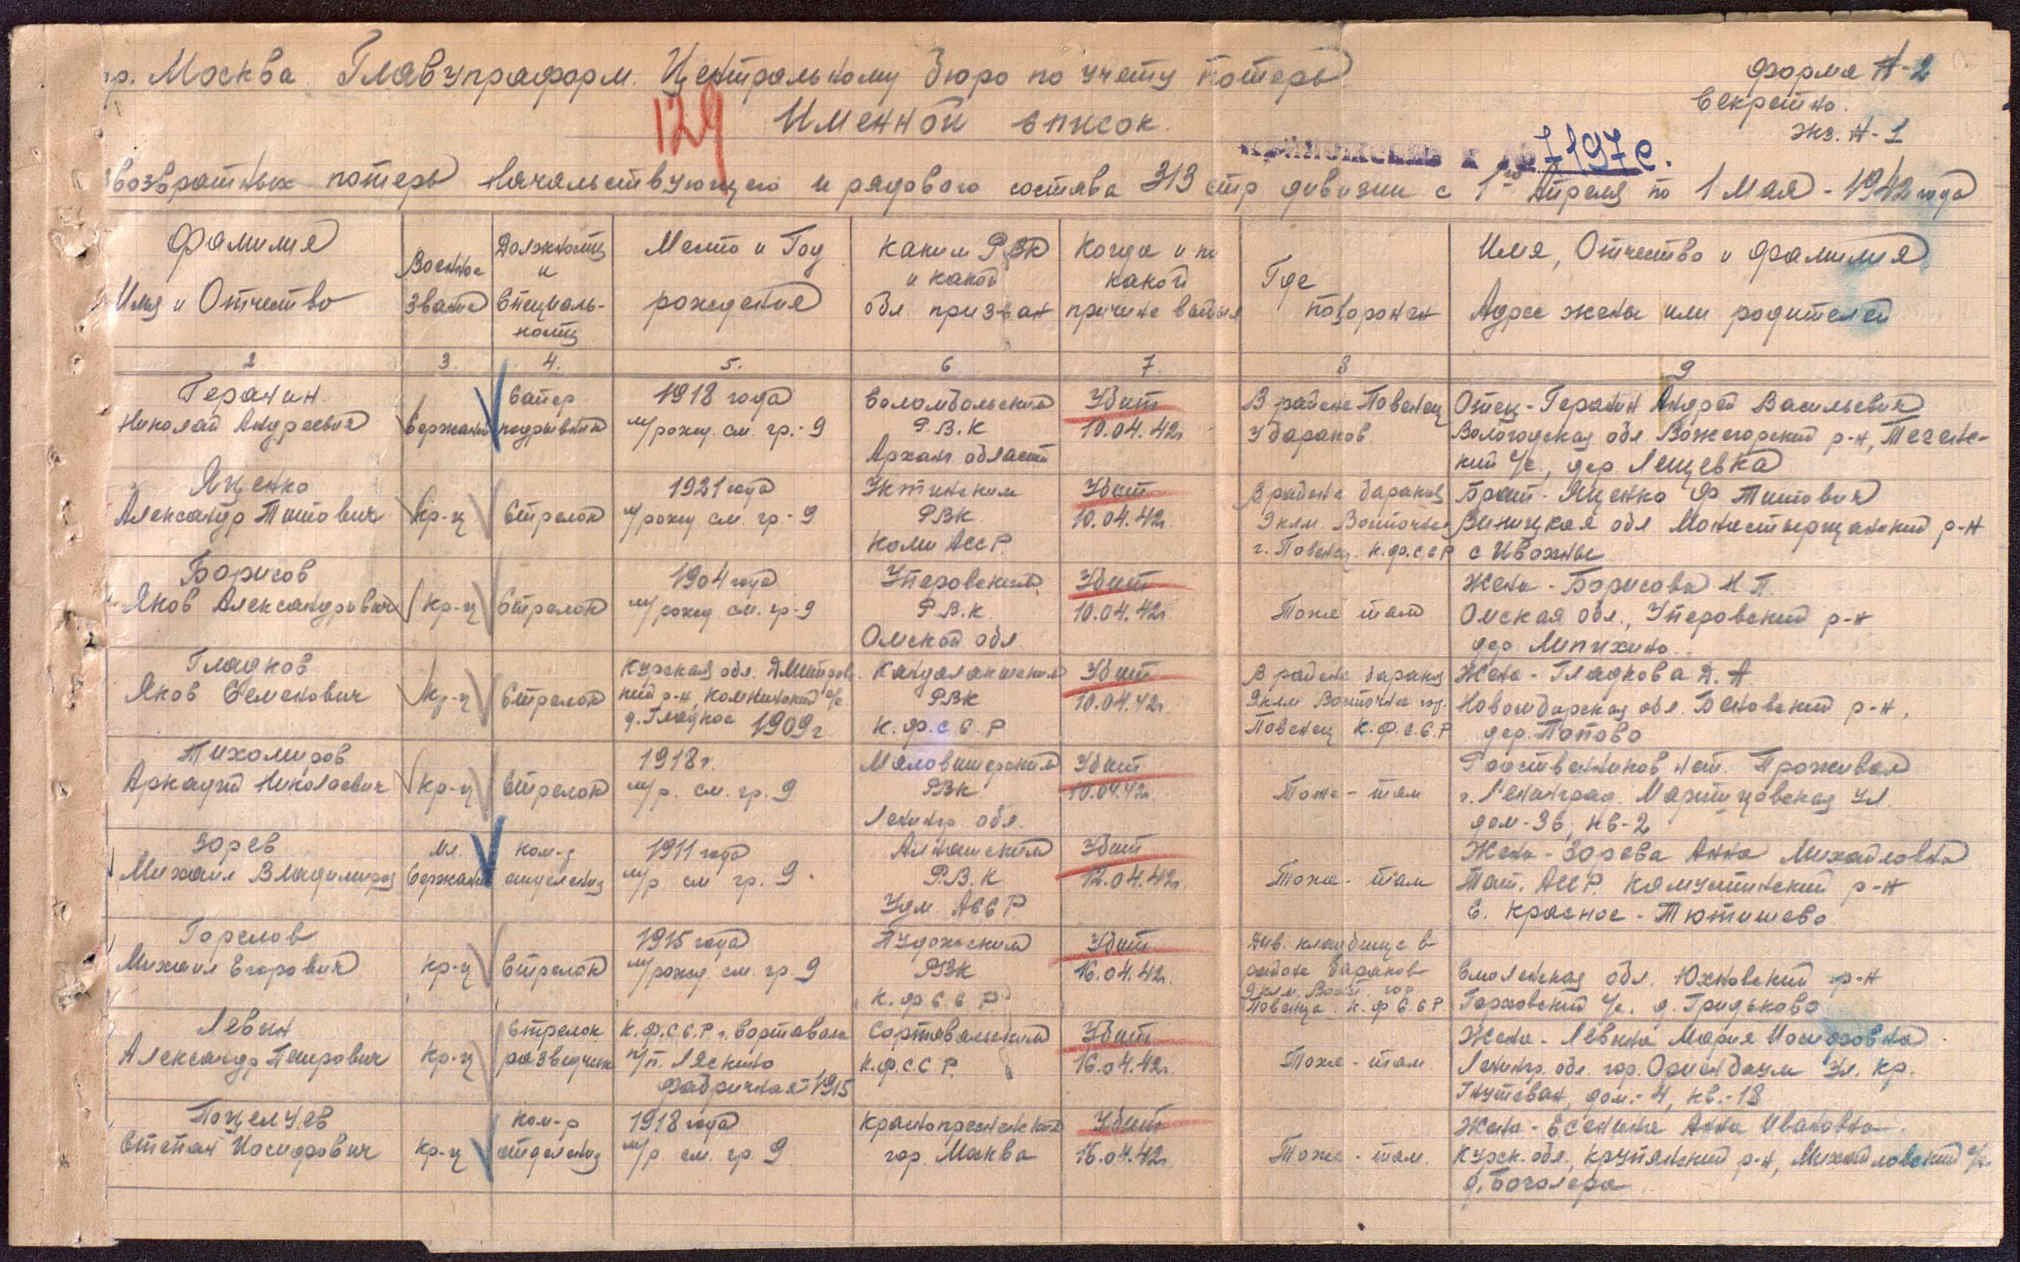 гр. Москва. Главупраформ. Центральному бюро по учету потерь
форма №-2
Секретно.
экз. №-1
129
Именной список.
7197с.
возвратных потерь начальствующего и рядового состава 313 стр дивизии с 1го Апреля по 1 Мая - 1942 года
Фамилия
Имя и Отчество
Военное
звание
Должность
и
Специаль-
ность
Место и Год
рождения
Каким РВК
и какой
обл. призван
Когда и по
какой
причине выбыл
Где
похоронен
Имя, Отчество и Фамилия
Адрес жены или родителей
2 3. 4. 5. 6 7 8 9
Геранин
Николай Андреевич
Сержант
Сапер
подрывник
1918 года
м/рожд. см. гр.-9
Соломбальским
Р.В.К
Архан. области
Убит
10.04.42г.
В районе Повенец
У бараков.
Отец-Геранин Андрей Васильевич
Вологодская обл Вожегорский р-н,
кий с/с., дер. Лещевка
Яценко
Александр Титович
Кр-ц
Стрелок
1921 года
м/рожд см. гр-9
Ухтинским
РВК.
Коми АССР.
Убит
10.04.42г.
В районе бараков
Восточнее
г. Повенец. К.Ф.С.С.Р
Брат-Яценко Ф. Титович
Виницкая обл Монастырщанский р-н
с Ивахны
Борисов
Яков Александрович
Кр-ц
Стрелок
1904 года
м/рожд. см. гр-9
Упоровским
Р.В.К.
Омской обл.
Убит
10.04.42г.
Тоже там
Жена-Борисова Н. П.
Омская обл., Упоровский р-н
дер. Липихино.
Гладков
Яков Семенович
Кр-ц
Стрелок
Курская обл. Дмитров-
кий р-н, с/с
д. Гладкое 1909г
Кандалакшским
РВК
К.Ф.С.С.Р
Убит
10.04.42г.
В районе бараков
Восточнее гор.
Повенец К.Ф.С.С.Р
Жена-Гладкова Д. А.
Новосибирская обл. Беловский р-н,
дер. Попово
Тихомиров
Аркадий Николаевич
Кр-ц
Стрелок
1918г.
м/р. см. гр. 9
Маловишерским
РВК.
Ленингр. обл.
Убит
10.04.42г.
Тоже-там
Родственников нет. Проживал
г. Ленинград. ул.
дом-36, кв-2
Зорев
Михаил Владимиров
Мл.
Сержант
Ком-р
отделения
1911 года
м/р см гр. 9.
Алнашским
Р.В.К
Удм. АССР
Убит
12.04.42г.
Тоже-там
Жена-Зорева Анна Михайловна
Тат. АССР. р-н
С. Красное-Тютишево
Горелов
Михаил Егорович
Кр-ц
Стрелок
1915 года
м/рожд. см. гр. 9
Пудожским
РВК
К.Ф.С.С.Р
Убит
16.04.42г.
Див. кладбище в
районе бараков
Вост. гор.
Повенца. К.Ф.С.С.Р
Смоленская обл. Юхновский р-н
с/с. д. Гридьково
Левин
Александр Петрович
Кр-ц
Стрелок
разведчик
К.Ф.С.С.Р г. Сортавала
п/п. Ляскило
Фабричная-1915
Сортавальским
К.Ф.С.С.Р.
Убит
16.04.42г.
Тоже-там.
Жена-Левина Мария Иосифовна
Ленингр. обл. гор. Ораниенбаум ул. Кр.
дом.-4, кв.-18
Поцелуев
Степан Иосифович
Кр-ц
Ком-р
отделения
1918 года
м/р см. гр. 9
Краснопресненским
гор. Москва
Убит
16.04.42г.
Тоже-там.
Жена-Есенина Анна Ивановна.
Курск. обл., р-н, Михайловский с/с.